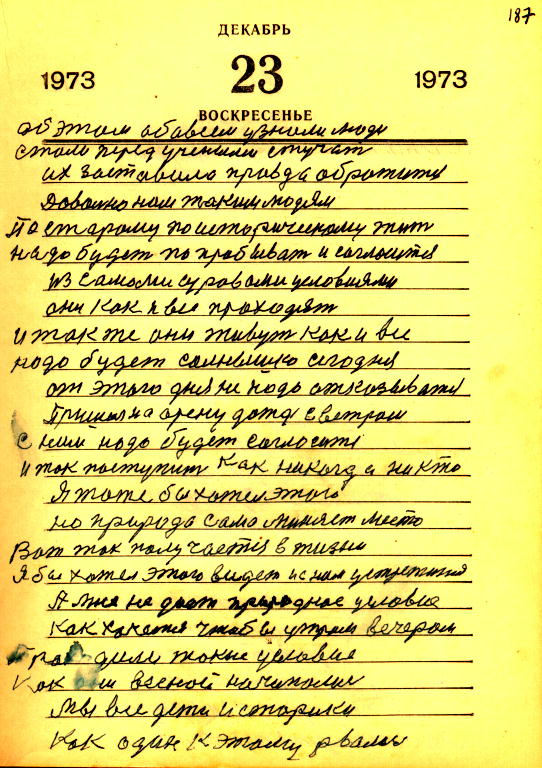 187
ДЕКАБРЬ
1973 23 1973
ВОСКРЕСЕНЬЕ
об этом обовсем узнали люди
стали перед учеными стучат
их заставило правда обротится
Доволно нам таким людям
По старому по историческому жит
надо будет по пробыват и соглосится
из самами суровами условиями
они как и все проходят
и так же они живут как и все
надо будет солнышко сегодня
от этого дня не надо отказыватся
Пришол на арену дождь с ветром
с ним надо будет согласится
и так поступит как никогда никто
Я тоже бы хотел этого
но природа сама миняет место
Вот так получается в жизни
Я бы хотел этого видет и с ним устретится
А мне не дает природное условие
Как хочется чтобы утром вечером
такие условия
Как они весной начинали
Мы все дети и старики
Как один к этому рвался